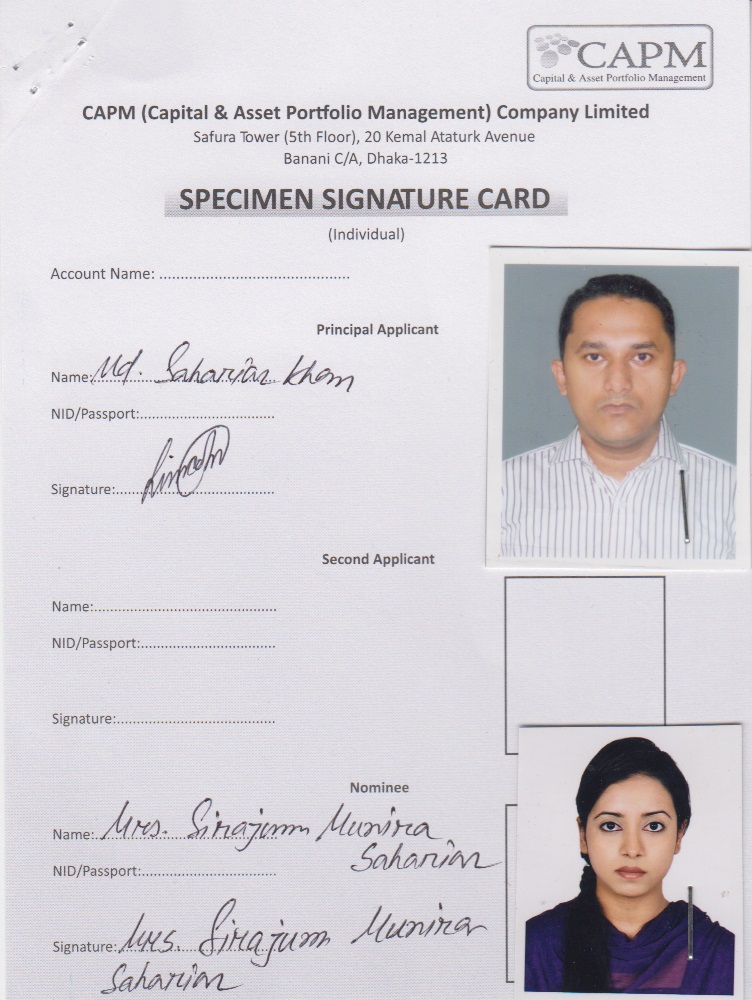 CAPM
Capital & Asset Portfolio Management
CAPM (Capital & Asset Portfolio Management) Company Limited
Safura Tower (5th Floor), 20 Kemal Ataturk Avenue
Banani C/A, Dhaka-1213
SPECIMEN SIGNATURE CARD
(Individual)
Account Name: ............................................
Principal Applicant
Name: Md. Saharian Khan
NID/Passport:...............................
Signature:
Second Applicant
Name:..........................................
NID/Passport:...............................
Signature:.....................................
Nominee
Name: Mrs. Sirajum Munira
Saharian
NID/Passport:...............................
Signature: Mrs. Sirajum Munira
Saharian